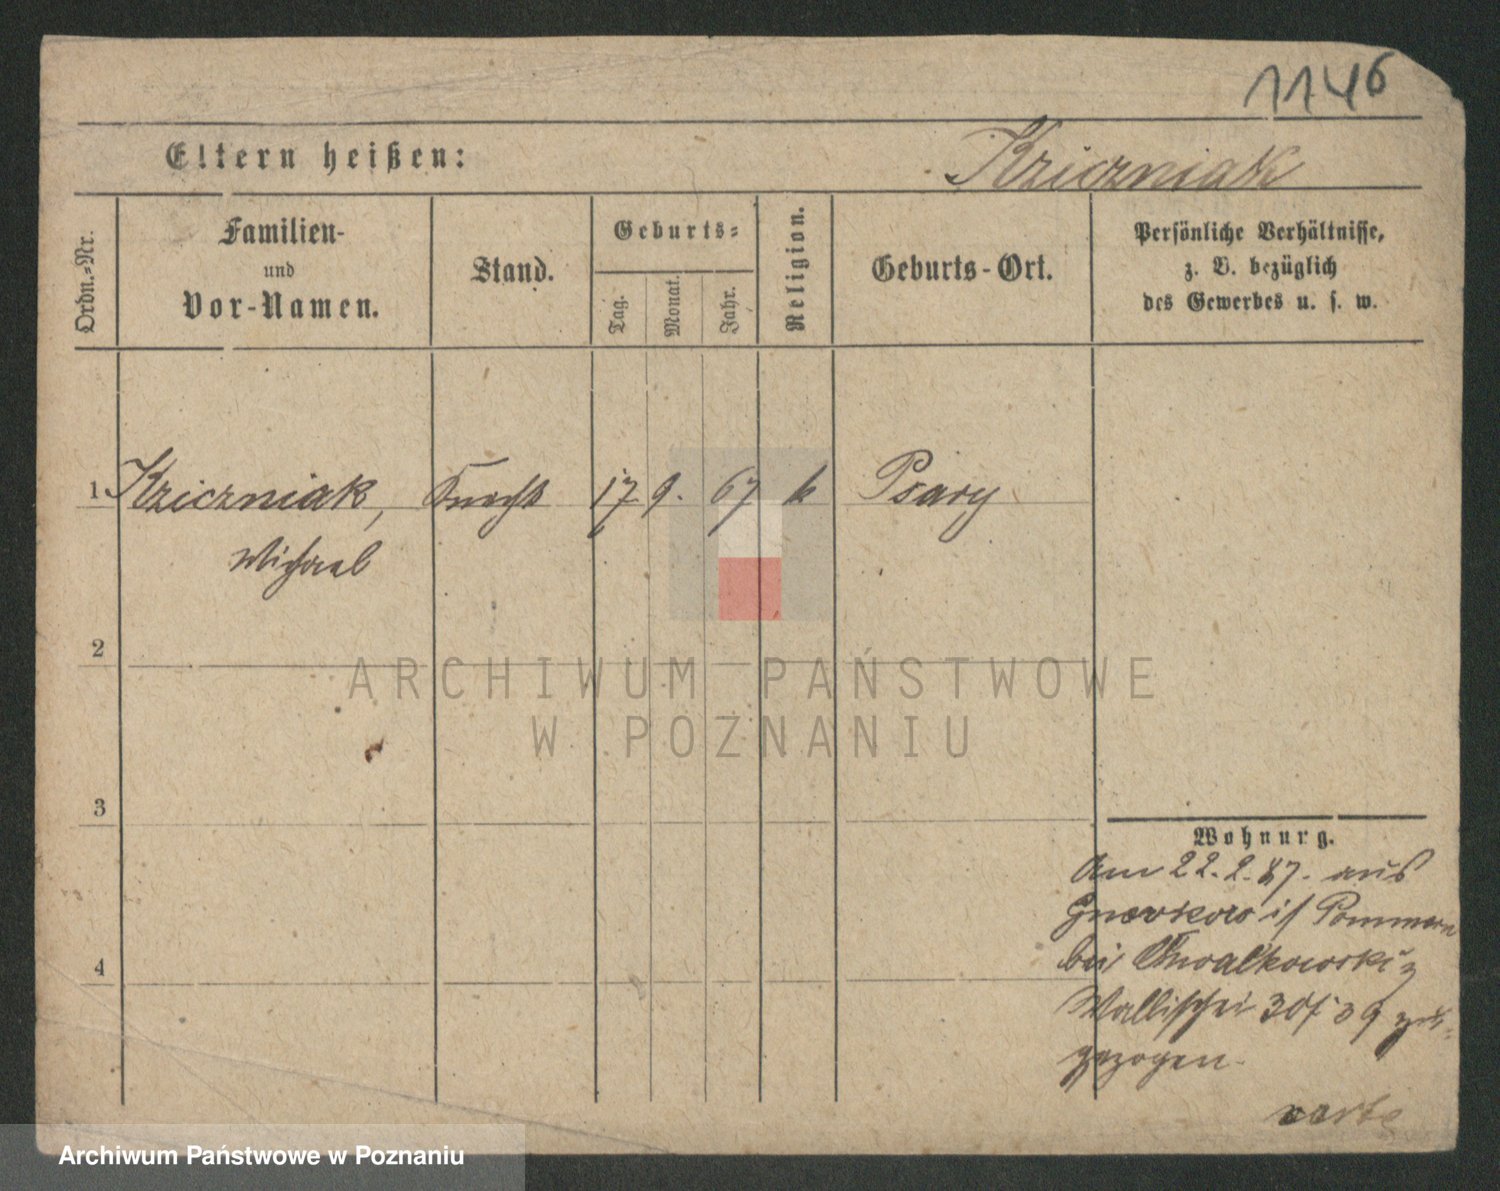 1146
Eltern heißen:
Kziczniak
Ordn.-Nr.
Familien-
und
Vor-Namen.
Stand.
Geburts-
Tag.
Monat.
Jahr.
Religion.
Geburts-Ort.
Persönliche Verhältnisse,
z. B. bezüglich
des Gewerbes u. s. w.
1 Kziczniak, Knecht 17 9. 67 k Psary
Michael
2
3
4
Wohnung.
Am 22.2.87. aus
i/ Pommern
bei Chwalkowski
Wallischei 38/39 zu-
gezogen.
verte
ARCHIWUM PAŃSTWOWE
W POZNANIU
Archiwum Państwowe w Poznaniu